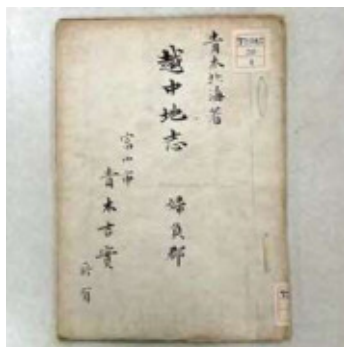 青木北海著
越中地志 婦負郡
富山市
青木吉寳
所有